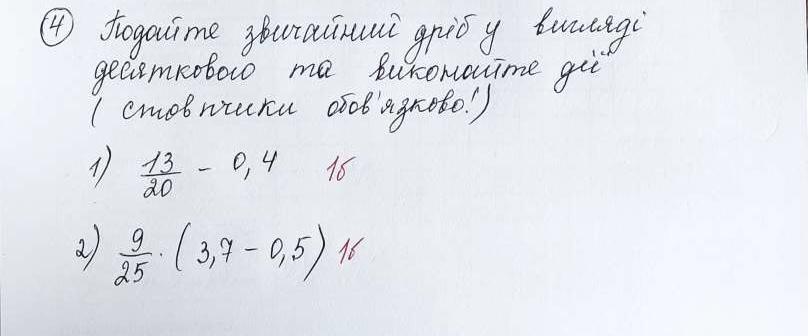 4 Подайте звичайний дріб у вигляді
десяткового та виконайте дії
(стовпчики обов'язково!)
1) 13/20 - 0,4 1б
2) 9/25 · (3,7 - 0,5) 1б